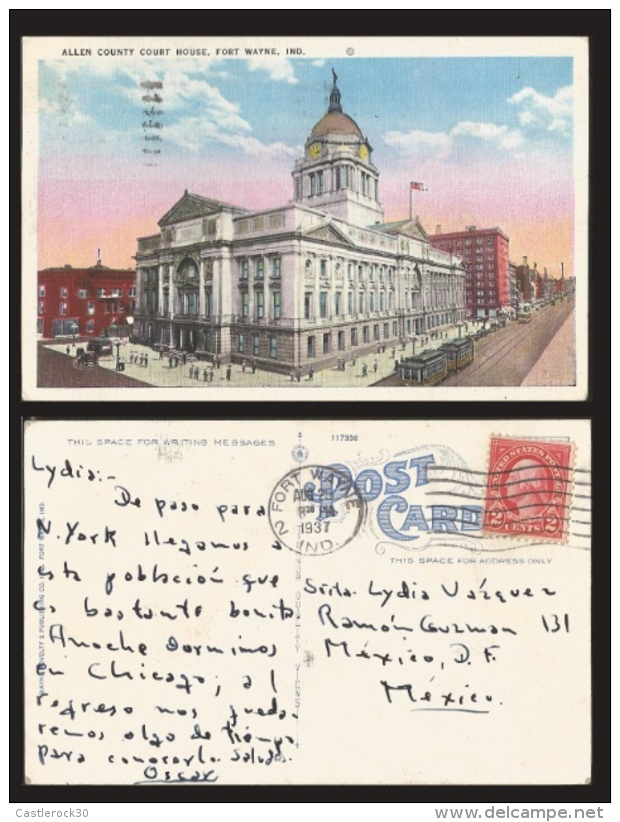 ALLEN COUNTY COURT HOUSE, FORT WAYNE, IND.
THIS SPACE FOR WRITING MESSAGES
117398
POST CARD
THIS SPACE FOR ADDRESS ONLY
FORT WAYNE
2
AUG 25
1937
IND.
UNITED STATES
2 CENTS 2
Lydia:-
De paso para
N. York llegamos a
esta población que
es bastante bonita
Anoche dormimos
en Chicago; al
regreso nos queda-
remos algo de tiempo
para conocerlo. Saludos.
Oscar
Srita. Lydia Vázquez
Ramón Guzman 131
México, D.F.
México.
Castlerock30
www.delcampe.net